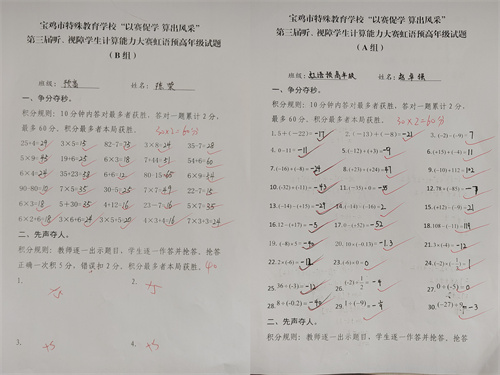 宝鸡市特殊教育学校“以赛促学 算出风采”
第三届听、视障学生计算能力大赛虹语预高年级试题
（B组）
班级：预高 姓名：陈荣
一、争分夺秒。
积分规则：10分钟内答对最多者获胜。答对一题累计2分，
最多60分。积分最多者本局获胜。 30×2=60分
25+4=29 3×5=15 82-7=75 3×8=24 35-7=28
5×9=45 19+6=25 6×3=18 7+44=51 54+6=60
6×4=24 35+23=58 6+6=12 80-15=65
90-80=10 7×5=35 30-5=25 7×7=49 22-7=15
6×3=18 5+30=35 4+12=16 23-7=16 5×7=35
6×2+6=18 3×6+6=24 3×5+5=20 4+4×3=16 7×3+3=24
二、先声夺人。
积分规则：教师逐一出示题目，学生逐一作答并抢答。抢答
正确一次积5分，错误扣2分。积分最多者本局获胜。
1. +5 2. +5
3. +5 4. +5
宝鸡市特殊教育学校“以赛促学 算出风采”
第三届听、视障学生计算能力大赛虹语预高年级试题
（A组）
班级：虹语预高年级 姓名：
一、争分夺秒。
积分规则：10分钟内答对最多者获胜。答对一题累计2分，
最多60分。积分最多者本局获胜。 30×2=60分
1. 5+(-22)=-17 2. (-13)+(-8)=-21 3. (-2)-(-9)=7
4. 0-11=-11 5. (-12)+(+3)=-9 6. (+15)+(-4)=11
7. (-16)+(-8)=-24 8. (+23)+(+24)=47
10. (-32)+(-11)=-43 11. (-35)+0=-35 12. 78+(-85)=-7
13. (-15)+(-14)=-29 14. (-14)-(-16)=2 15. (+12)-(-9)=21
17. 0-(+52)=-52 18. 108-(-11)=119
19. (-8)+5=-40 20. 10×(-0.13)=-1.3 21. 3×(-4)=-12
22. 2×(-6)=-12 23. (-6)×0=0
25. 36÷(-3)=-12 27. 0÷(-5)=0
28. 8÷(-0.2)=-40 30. (-27)÷9=-3
二、先声夺人。
积分规则：教师逐一出示题目，学生逐一作答并抢答。抢答